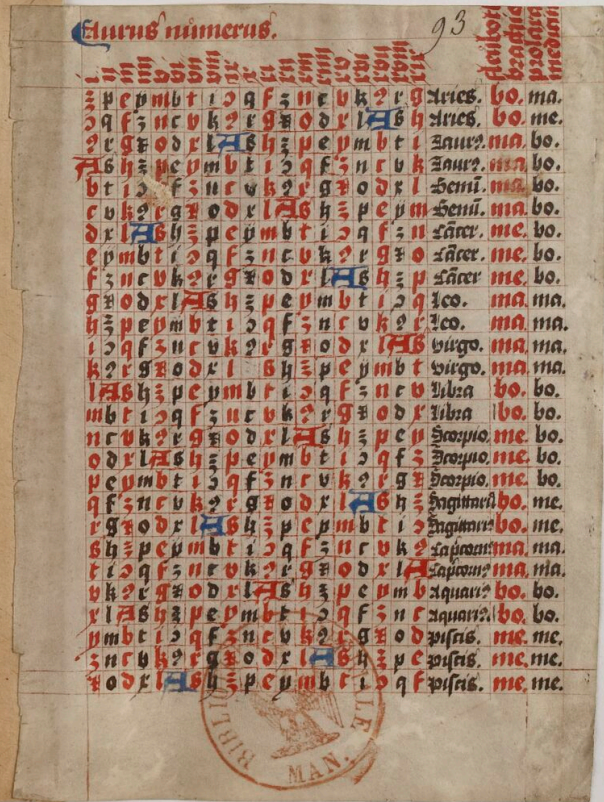 Aurus numerus. 93
i ii iii iiii v vi vii viii ix x xi xii xiii xiiii xv xvi xvii xviii xix brachio mediana
z p e y m b t i ɔ q f z n c v k 9 r g Aries. bo. ma.
ɔ q f z n c v k 9 r g x o d r l A s h Aries. bo. me.
9 r g x o d r l A s h z p e y m b t i Taur9. ma. bo.
A s h z p e y m b t i ɔ q f z n c v k Taur9. ma. bo.
b t i ɔ f z n c v k 9 r g x o d r l Gemi. ma. bo.
c v k 9 r g x o d r l A s h z p e y m Gemi. ma. bo.
d r l A s h z p e y m b t i ɔ q f z n Cācer. me. bo.
e y m b t i ɔ q f z n c v k 9 r g x o Cācer. me. bo.
f z n c v k 9 r g x o d r l A s h z p Cācer me. bo.
g x o d r l A s h z p e y m b t i ɔ q Leo. ma. ma.
h z p e y m b t i ɔ q f z n c v k 9 r Leo. ma. ma.
i ɔ q f z n c v k 9 r g x o d r l A s virgo. ma. ma.
k 9 r g x o d r l s h z p e y m b t virgo. ma. ma.
l A s h z p e y m b t i ɔ q f z n c v Libra bo. bo.
m b t i ɔ q f z n c v k 9 r g x o d r Libra bo. bo.
n c v k 9 r g x o d r l A s h z p e y Scorpio. me. bo.
o d r l A s h z p e y m b t i ɔ q f z Scorpio. me. bo.
p e y m b t i ɔ q f z n c v k 9 r g x Scorpio. me. bo.
q f z n c v k 9 r g x o d r l A s h z Sagittari9 bo. me.
r g x o d r l A s h z p e y m b t i ɔ Sagittari9 bo. me.
s h z p e y m b t i ɔ q f z n c v k 9 Capcorn9 ma. ma.
t i ɔ q f z n c v k 9 r g x o d r l A Capcorn9 ma. ma.
v k 9 r g x o d r l A s h z p e y m b Aquari9 bo. bo.
r l A s h z p e y m b t i ɔ q f z n c Aquari9. bo. bo.
y m b t i ɔ q f z n c v k 9 r g x o d piscis. me. me.
z n c v k 9 r g x o d r l A s h z p e piscis. me. me.
x o d r l A s h z p e y m b t i ɔ q f piscis. me. me.
MAN.